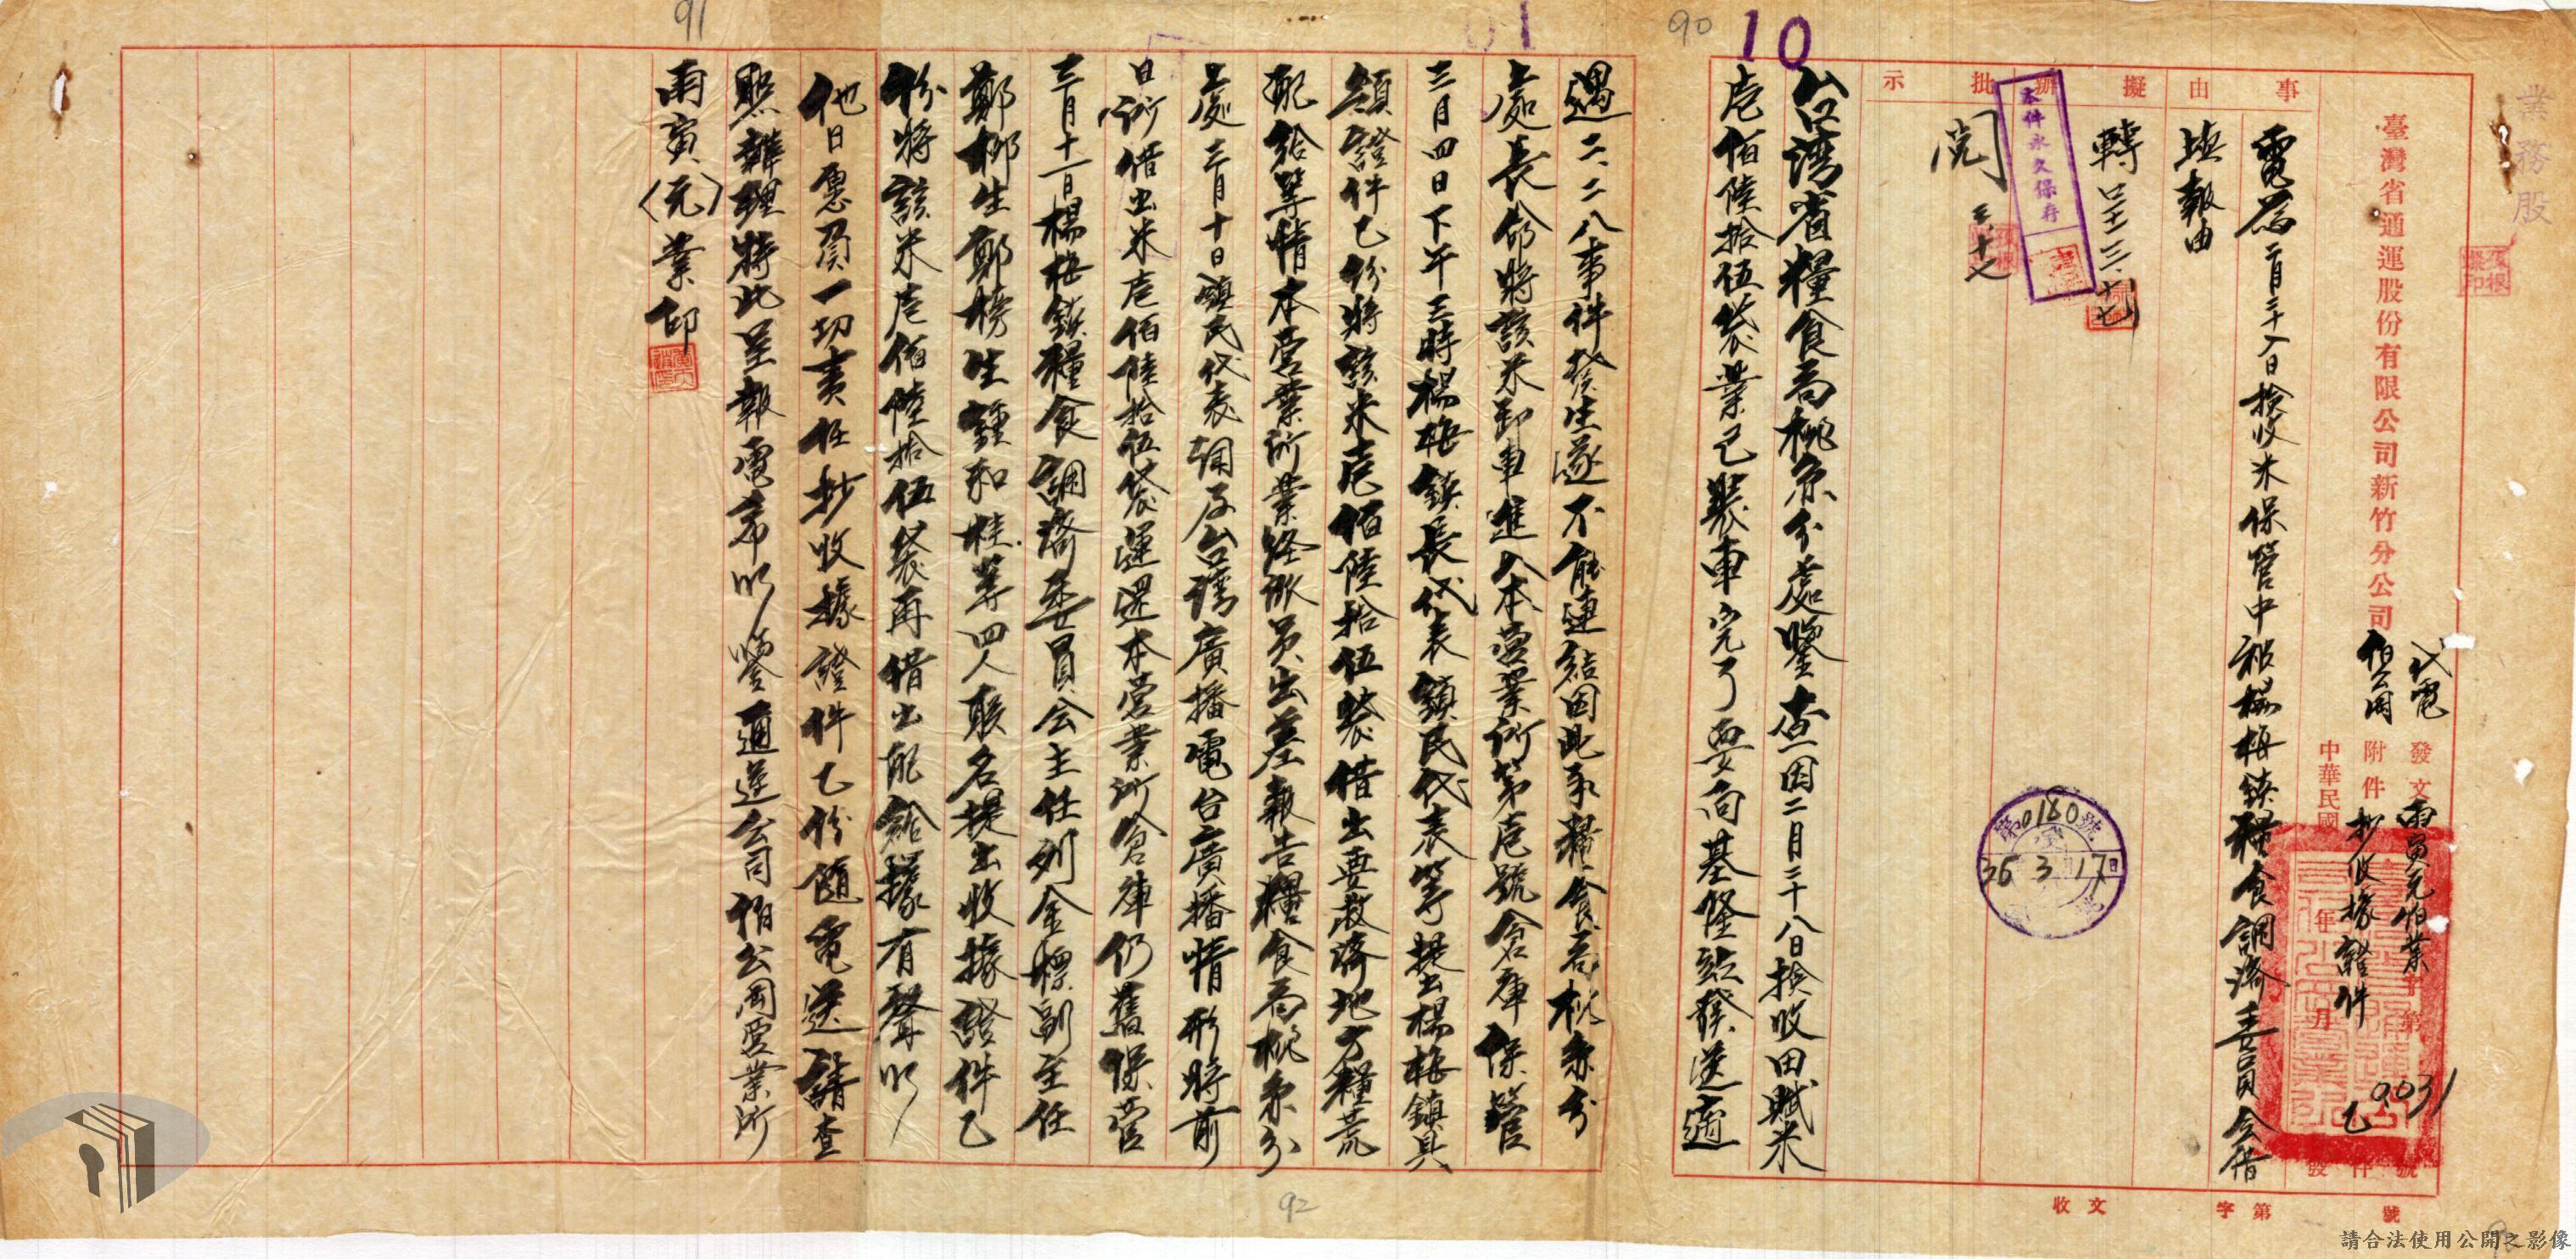 業務股
臺灣省通運股份有限公司新竹分公司
代電
伯公岡
發文雨寅元伯業字第0031號
附件抄收據證件乙件
中華民國年月發
事由
電為二月二十八日檢收米保管中被楊梅鎮糧食調濟委員会借
填報由
擬辦
轉呈三、十七
本件永久保存
批示
閱三、十七
第0180號
36 3 17
收文字第號
90
10
台湾省糧食局桃系分處鑒查因二月二十八日検收田賦米
壱佰陸拾伍袋業已裝車完了要向基隆站發送適
遇二、二八事件發生遂不能連結因此承糧食局桃系分
處長命將該米卸車進入本営業所第壱號倉庫保管
三月四日下午三時楊梅鎮長代表鎮民代表等提出楊梅鎮具
領證件乙份將該米壱佰陸拾伍袋借出要救済地方糧荒
配給等情本営業所業经派員出差報告糧食局桃系分
處三月十日鎮民代表謂及台湾廣播電台廣播情形將前
日所借出米壱佰陸拾伍袋運還本営業所倉庫仍舊保管
三月十一日楊梅鎮糧食調濟委員会主任列金標副主任
鄭柳生鄭榜生鍾和桂等四人聯名提出收據證件乙
份將該米壱佰陸拾伍袋再借出配給據有聲明
他日愿負一切責任抄收據證件乙份隨電送請查
照辦理特此呈報電希明鑒通運公司伯公岡営業所
雨寅(元)業印
91
92
請合法使用公開之影像